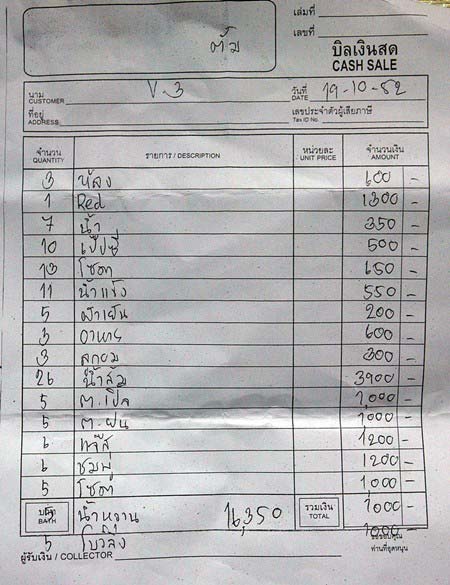 ตั้ม
เล่มที่
เลขที่
บิลเงินสด
CASH SALE
นาม
CUSTOMER V-3
วันที่
DATE 19-10-52
ที่อยู่
ADDRESS
เลขประจำตัวผู้เสียภาษี
Tax ID No.
จำนวน รายการ / DESCRIPTION หน่วยละ จำนวนเงิน
QUANTITY UNIT PRICE AMOUNT
3 600 -
1 Red 1300 -
7 น้ำ 350 -
10 เป๊ปซี่ 500 -
13 โซดา 650 -
11 น้ำแข็ง 550 -
5 ผ้าเย็น 200 -
3 อาหาร 600 -
3 ลูกอม 300 -
26 น้ำส้ม 3900 -
5 ต.เปิล 1,000 -
5 ต.ฝน 1000 -
6 1200 -
6 ชมพู่ 1200 -
5 โซดา 1000 -
บาท
BATH
5 น้ำหวาน 16,350 รวมเงิน
TOTAL 1000 -
5 โบว์ลิ่ง 1000 -
ขอขอบคุณ
ท่านที่อุดหนุน
ผู้รับเงิน / COLLECTOR